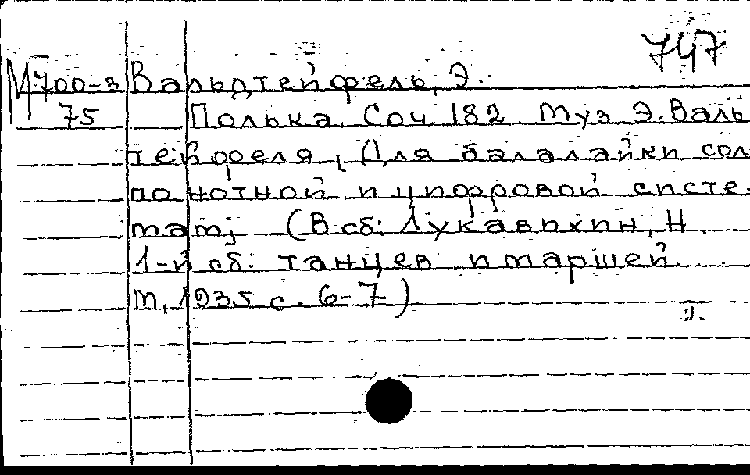 747
М700-3 Вальдтейфель, Э.
75 Полька. Соч 182 Муз Э. Валь
тейфеля, (Для балалайки сол
по нотной и цифровой систе-
мам; (В сб: Лукавихин, Н.
1-й сб. танцев и маршей.
М, 1935 с. 6-7)